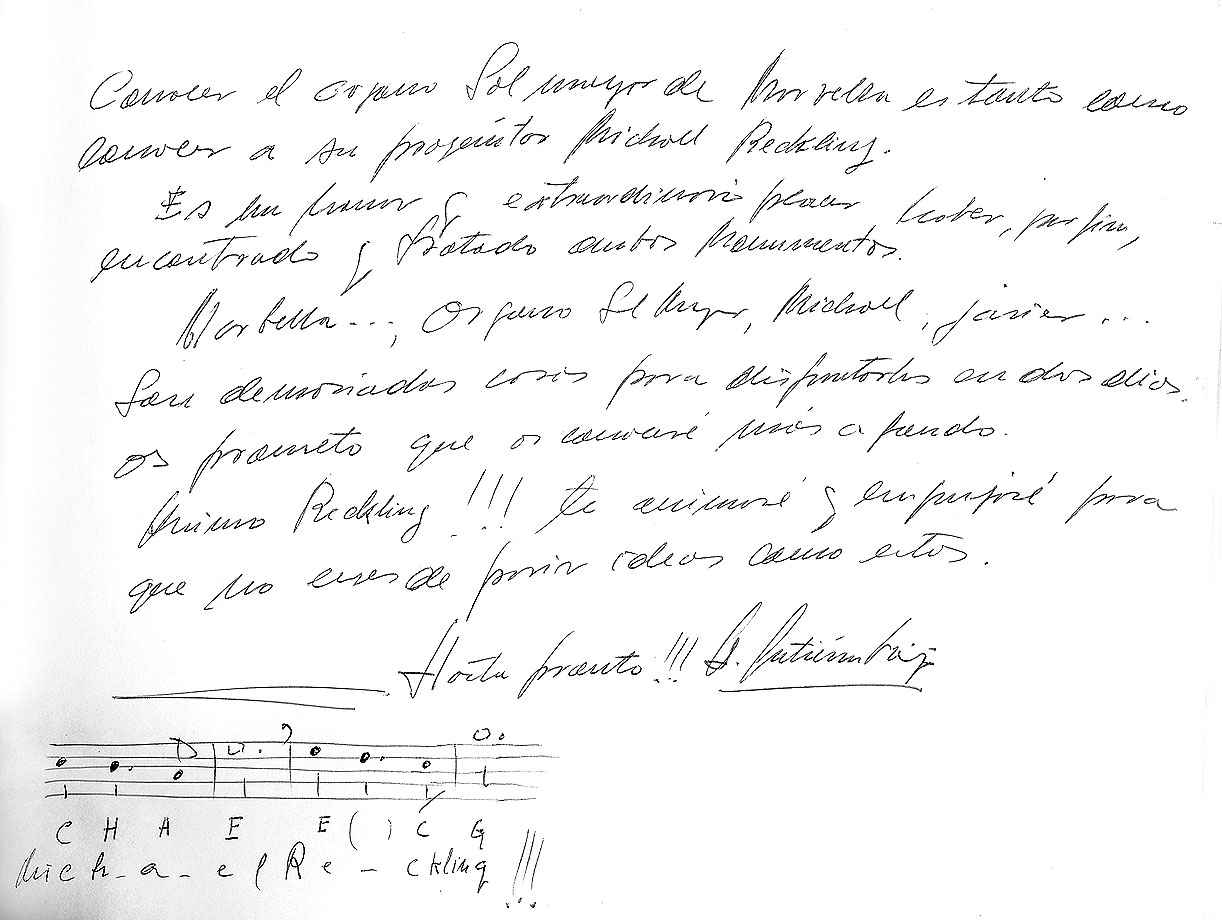 Conocer el organo Sol mayor de Marbella es tanto como
conocer a su progenitor Michael Reckling.
Es un honor y extraordinario placer haber, por fin,
encontrado y tratado ambos Monumentos.
Marbella..., Organo Sol Mayor, Michael, Javier...
Son demasiadas cosas para disfrutarlas en dos dias.
Os prometo que os conoceré más a fondo.
Animo Reckling!!! te animaré y empujaré para
que no ceses de parir ideas como estas.
Hasta pronto!!! G. Gutiérrez
C H A E E ( ) C G
Mich-a-el Re-ckling!!!